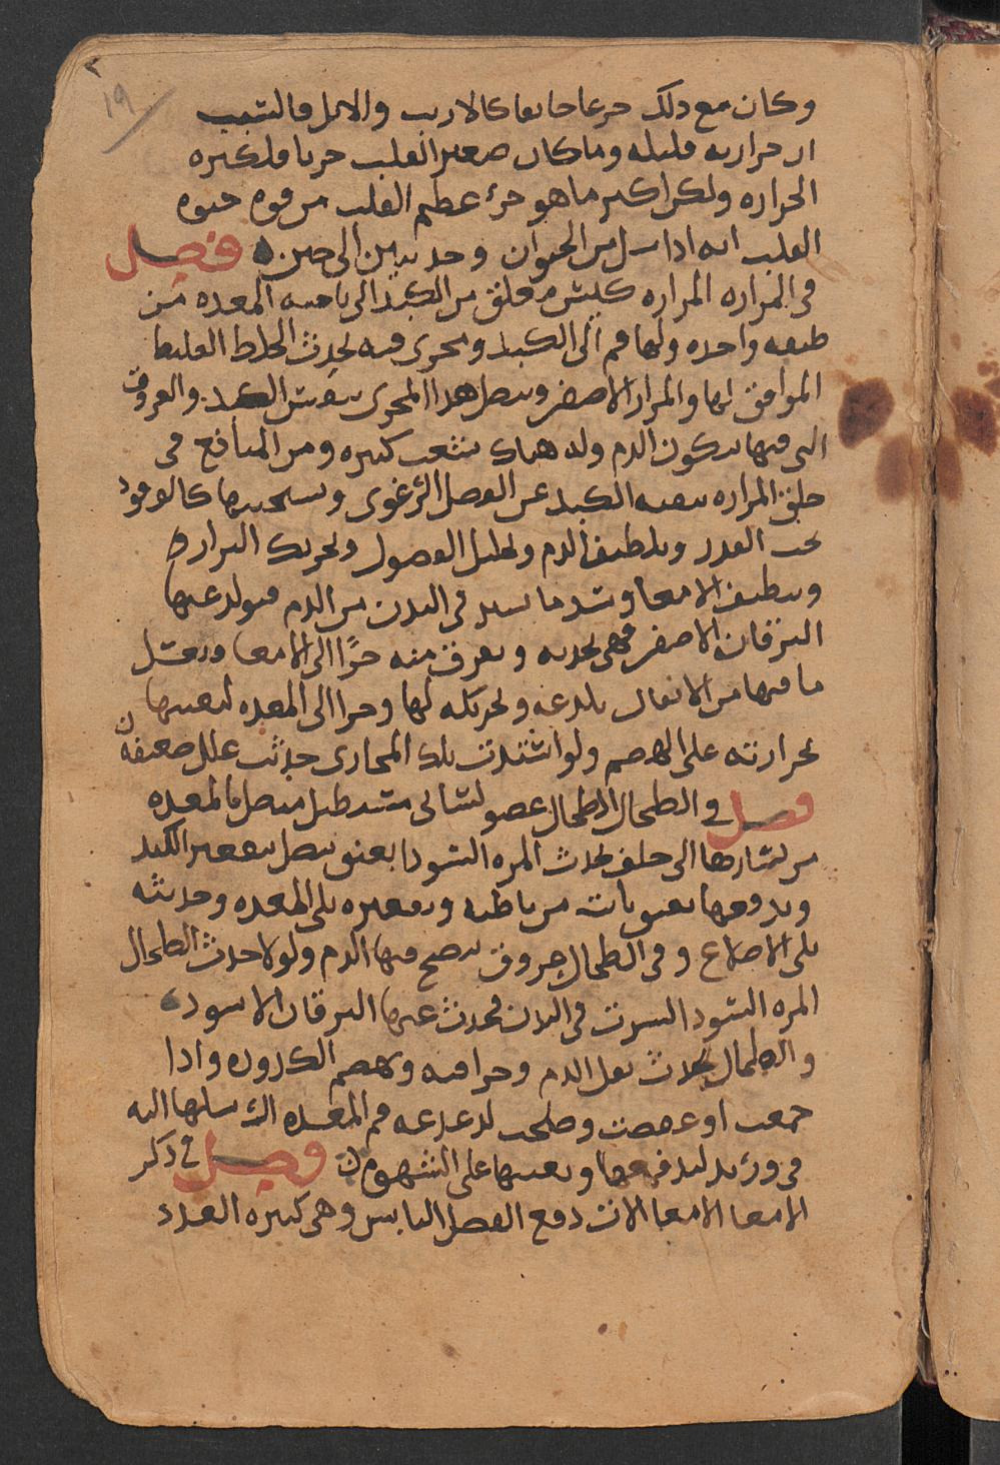 ١٩
وكان مع ذلك جزعا خايفا كالارنب والايل فالسبب
ان حرارته قليله وما كان صغير القلب جريا فلكثره
الحراره ولكن اكثر ما هو جرئ عظيم القلب من قوه
القلب انه اذا من الحيوان وحد الى حين فصل
فى المراره المراره كيس معلق من الكبد الى ناحيه المعده من
طبقه واحده ولها فم الى الكبد ومجرى فيه يجذب الخلط الغليظ
الموافق لها والمرار الاصفر ويتصل هذا المجرى بنفس الكبد والعروق
التى فيها يتكون الدم وله هناك شعب كثيره ومن المنافع فى
خلق المراره تنقيه الكبد عن الفضل الرغوى وتسخينها كالوقود
تحت القدر وتلطيف الدم وتحليل الفضول وتحريك البراز
وتنظيف الامعا وشد ما يسترخى فى البدن من الدم فيولد عنها
اليرقان الاصفر فهى تجذبه وتفرق منه جزا الى الامعا وتغسل
ما فيها من الاثفال بلذعه وتحريكه لها وجزا الى المعده ليعينها
بحرارته على الهضم ولو انسدت تلك المجارى حدثت علل صعبه
فصل فى الطحال الطحال عضو لسانى مستطيل متصل بالمعده
من يسارها الى خلف يجذب المره السودا بعنق متصل بتقعير الكبد
ويدفعها من باطنه وتقعيره يلى المعده وحدبته
يلى الاضلاع وفى الطحال عروق ينضج فيها الدم ولولا جذب الطحال
المره السودا لسرت فى البدن فحدث عنها اليرقان الاسود
والطحال يجذب ثفل الدم وحراقته ويهضم الكدوره واذا
حمضت او عفصت وصلحت لدغدغه فم المعده ارسلها اليه
فى وريد ليدغدغها ويعينها على الشهوه فصل فى ذكر
الامعا الامعا الات دفع الفضل اليابس وهى كثيره العدد